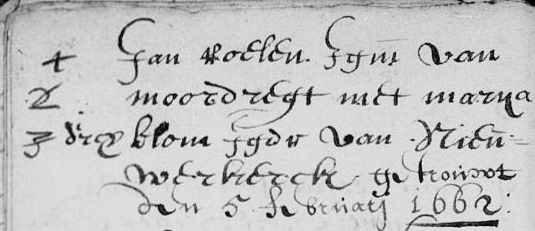 1 Jan Roelen Jgm van
2 moordregt met marya
3 drx blom Jgdr van Nieu=
werkerck getrouwt
den 5 februarij 1662: